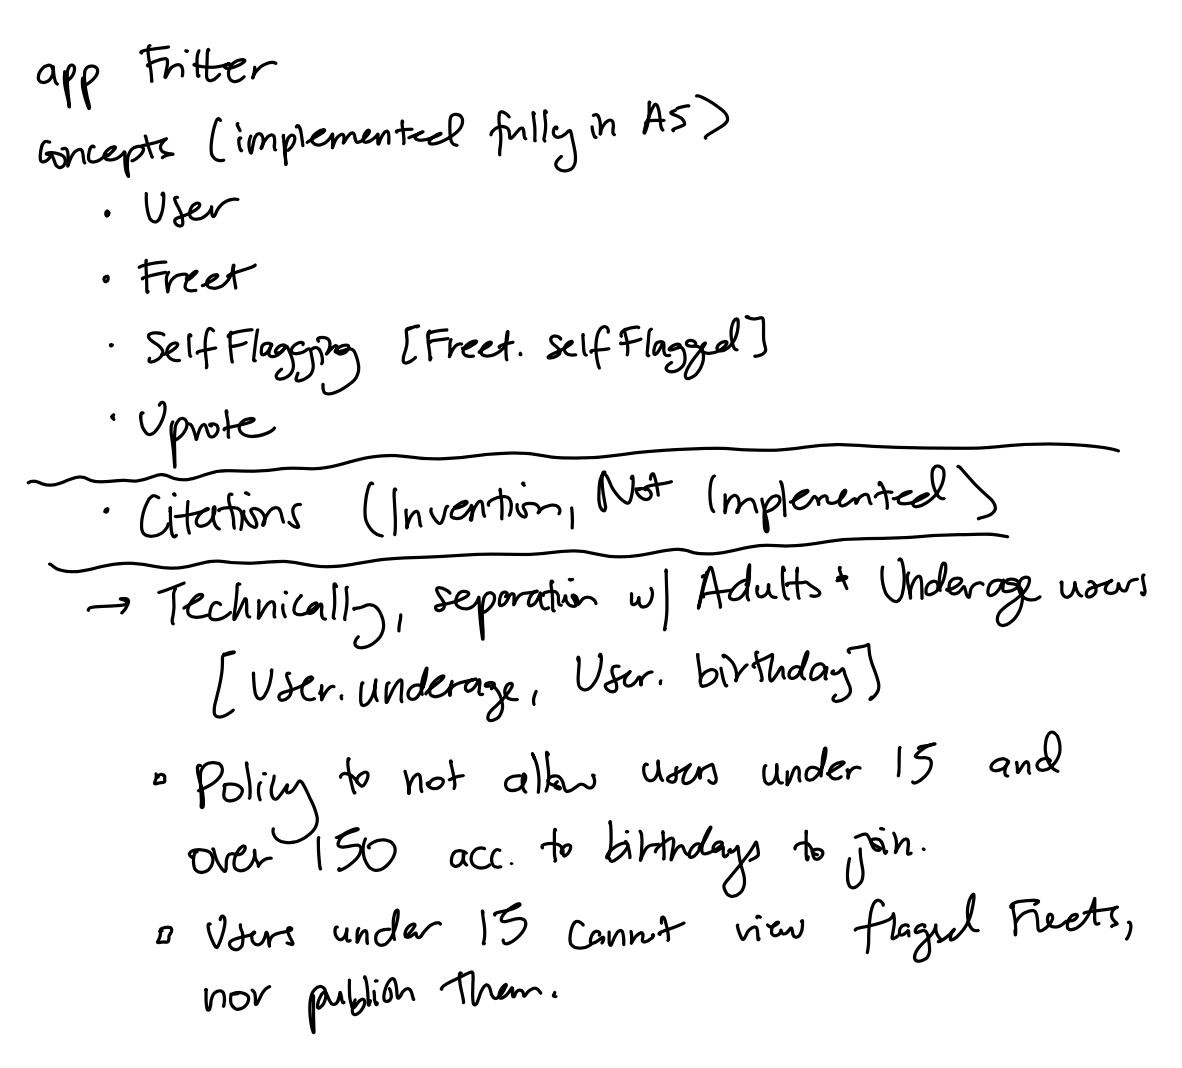 app Fritter
Concepts (implemented fully in A5)
• User
• Freet
• SelfFlagging [Freet. selfFlagged]
• Upvote
• Citations (Invention, Not Implemented)
→ Technically, separation w/ Adults + Underage users
[User.underage, User.birthday]
▫ Policy to not allow users under 15 and
over 150 acc. to birthdays to join.
▫ Users under 15 cannot view flagged Freets,
nor publish them.